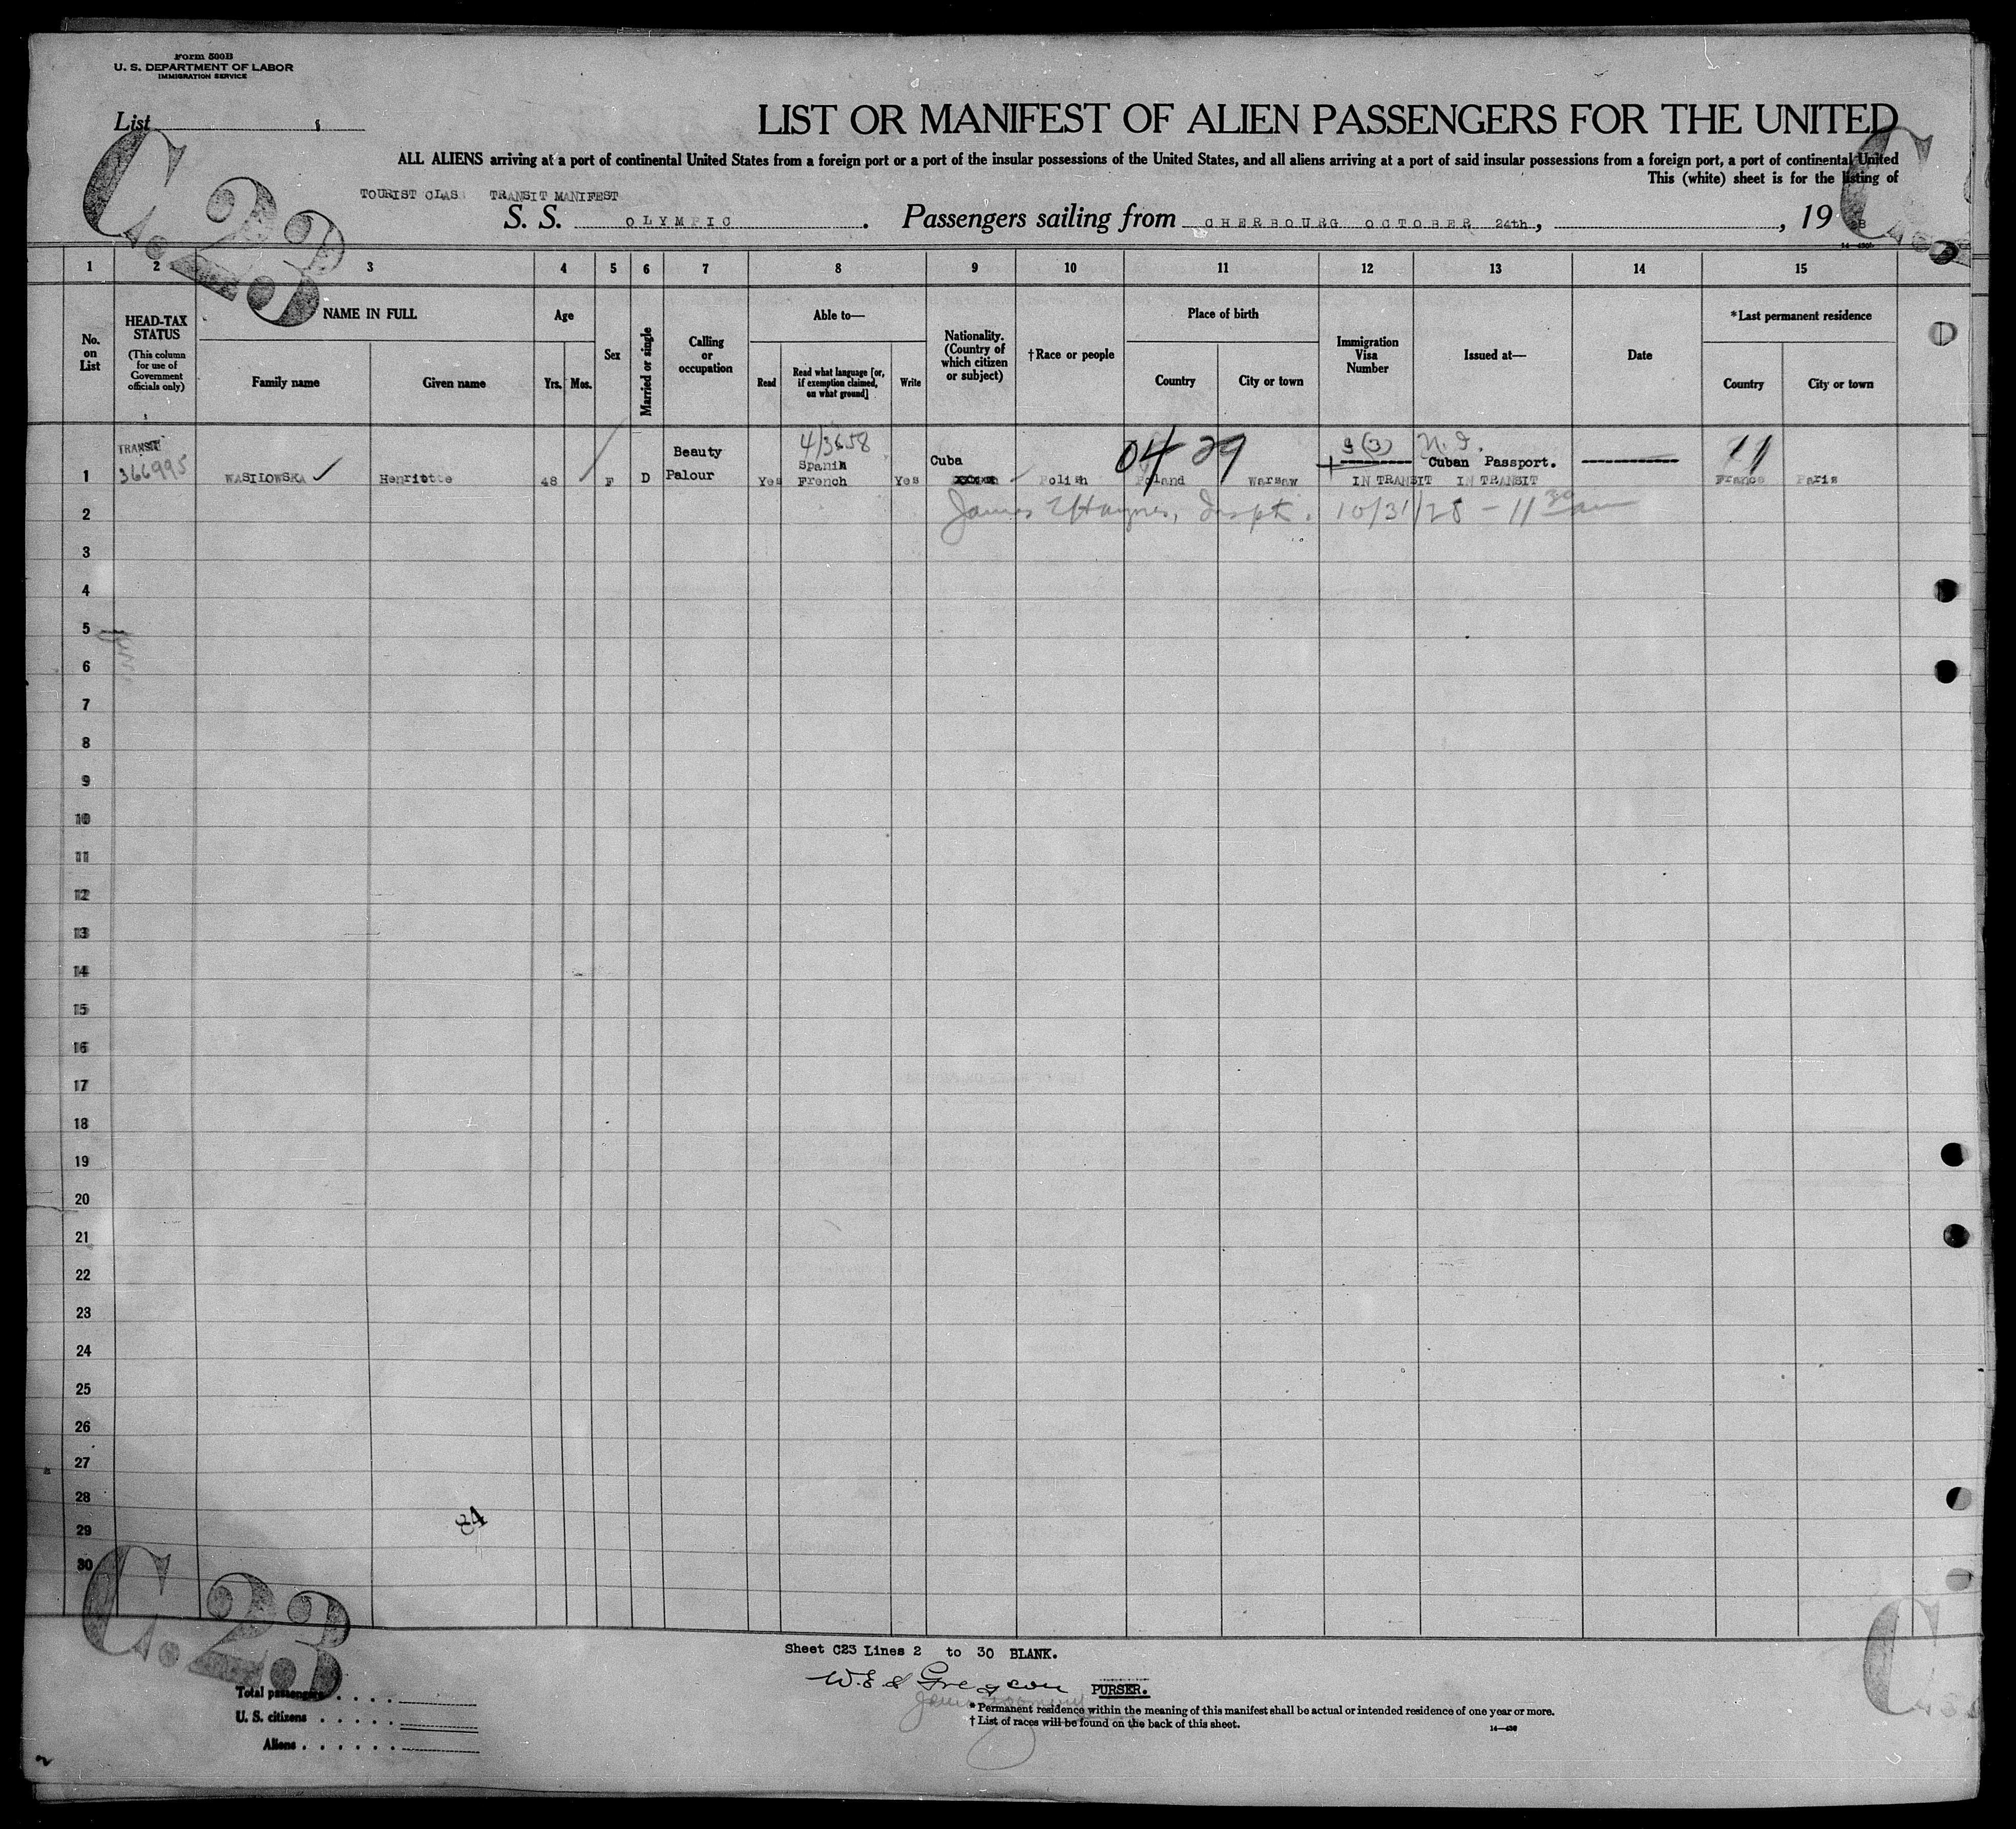 Form 500B
U. S. DEPARTMENT OF LABOR
IMMIGRATION SERVICE
List
LIST OR MANIFEST OF ALIEN PASSENGERS FOR THE UNITED
ALL ALIENS arriving at a port of continental United States from a foreign port or a port of the insular possessions of the United States, and all aliens arriving at a port of said insular possessions from a foreign port, a port of continental United
This (white) sheet is for the listing of
C.23
TOURIST CLAS TRANSIT MANIFEST
S. S. OLYMPIC. Passengers sailing from CHERBOURG OCTOBER 24th, , 1928
1 2 3 4 5 6 7 8 9 10 11 12 13 14 15
No. on List
HEAD-TAX STATUS
(This column for use of Government officials only)
NAME IN FULL
Family name
Given name
Age
Yrs. Mos.
Sex
Married or single
Calling or occupation
Able to—
Read
Read what language [or, if exemption claimed, on what ground]
Write
Nationality. (Country of which citizen or subject)
†Race or people
Place of birth
Country
City or town
Immigration Visa Number
Issued at—
Date
*Last permanent residence
Country
City or town
TRANSIT
366995
4/3658
04 29
3(3) N.I.
11
1 WASILOWSKA ✓ Henriotte 48 F D Beauty Palour Yes Spanih French Yes Cuba Polish Poland Warsaw IN TRANSIT Cuban Passport. IN TRANSIT France Paris
2 James Haynes, Inspt. 10/31/28 - 11 30 am
3
4
5
6
7
8
9
10
11
12
13
14
15
16
17
18
19
20
21
22
23
24
25
26
27
28
29
30
84
C.23
Sheet C23 Lines 2 to 30 BLANK.
PURSER.
Total passengers
U. S. citizens
Aliens
* Permanent residence within the meaning of this manifest shall be actual or intended residence of one year or more.
† List of races will be found on the back of this sheet.
14—430